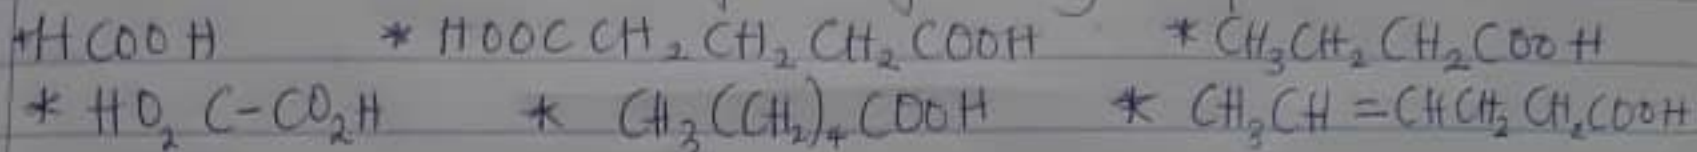 * HCOOH * HOOCCH₂CH₂CH₂COOH * CH₃CH₂CH₂COOH
* HO₂C-CO₂H * CH₃(CH₂)₄COOH * CH₃CH=CHCH₂CH₂COOH